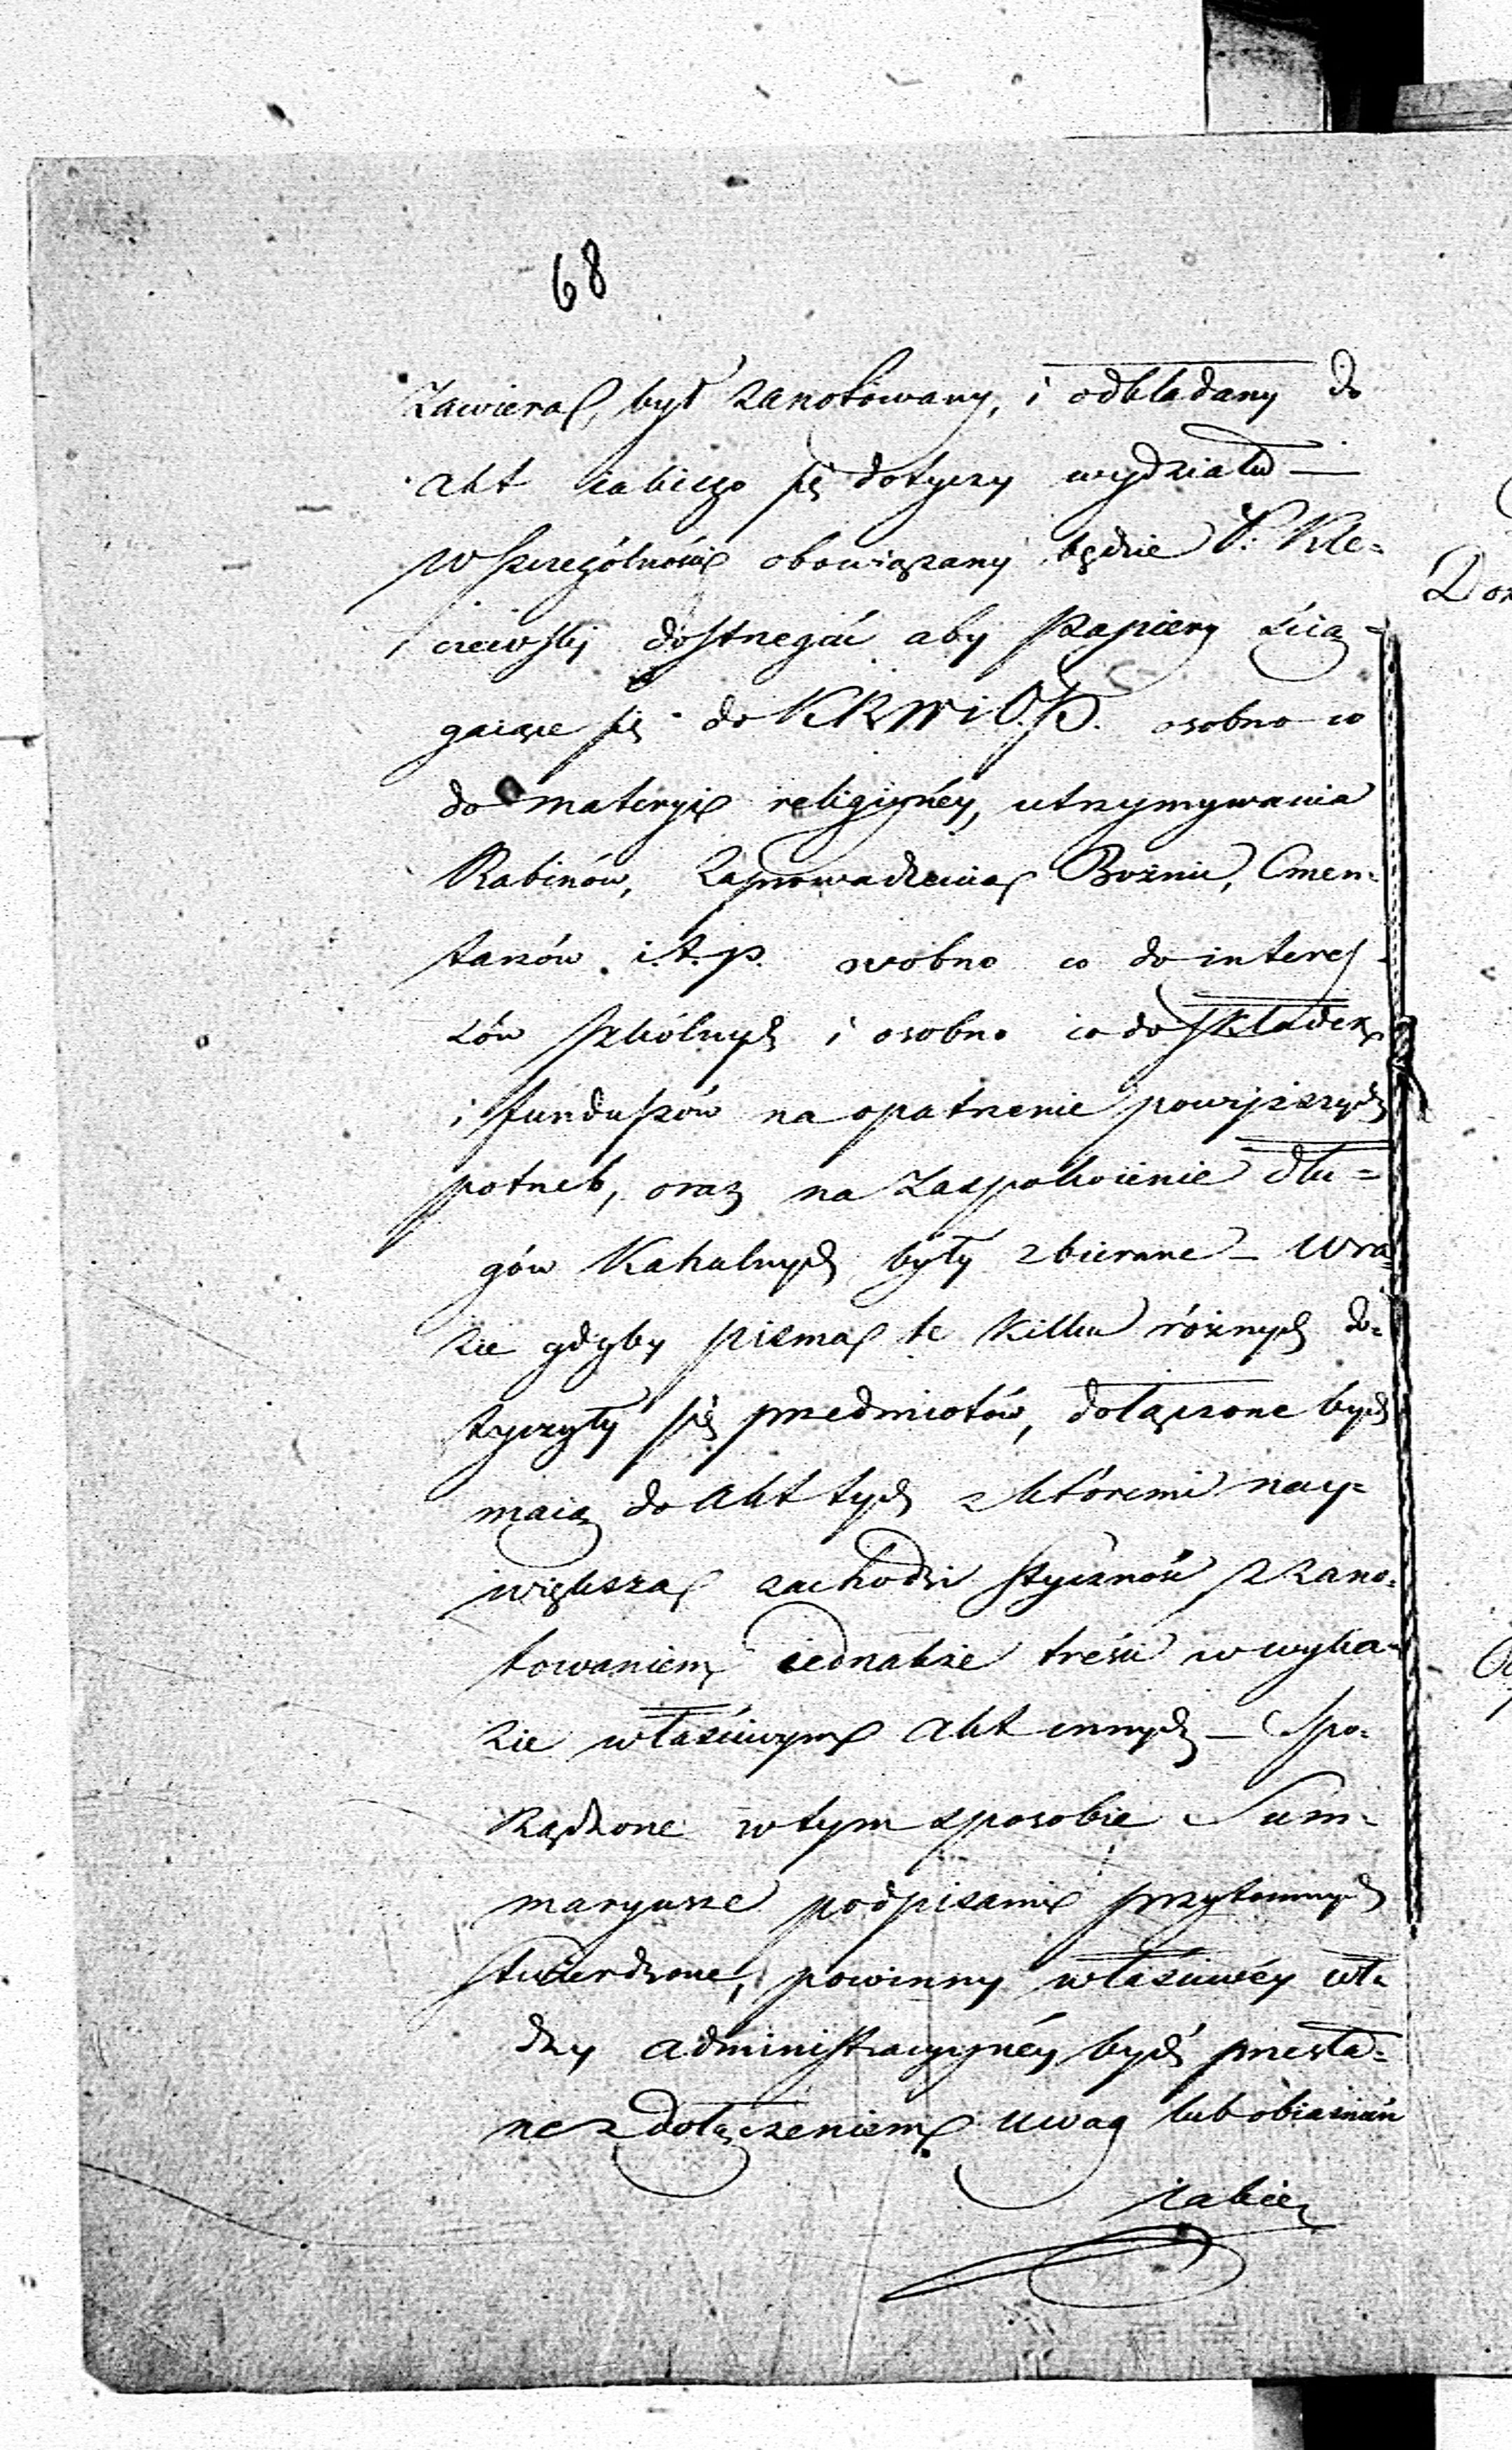 68
zawierał, był zanotowany, i odkładany do
akt iakiego się dotyczy wydziału —
w szczególności obowiązany będzie P. Kle=
czewski dostrzegać aby papiery ścią=
gaiące się do KRWiOP. osobno co
do materyi religiyney, utrzymywania
Rabinów, zaprowadzenia Bożnic, Cmen=
tarzów i.t.p. osobno co do interes=
sów szkólnych i osobno co do składek
i funduszów na opatrzenie powyższych
potrzeb, oraz na zaspokoienie dłu=
gów Kahalnych były zbierane — W ra=
zie gdyby pisma te kilku różnych do=
tyczyły się przedmiotów, dołączone bydź
maią do Akt tych z któremi nay=
większa zachodzi styczność z zano=
towaniem iednakże treści w wyka=
zie właściwym akt innych — Spo=
rządzone w tym sposobie Sum=
maryusze podpisami przytomnych
stwierdzone, powinny właściwéy wła=
dzy administracyynéy bydź przesła=
ne z dołączeniem uwag lub obiaśnień
iakie